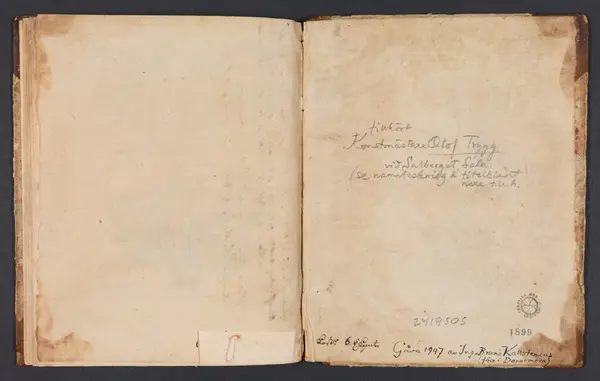 tillhört
Konstmästare Olof Trygg
vid Salberget, Sala
(se namnteckning å titelbladet
nere t. h.
2419505
1899
Gåva 1947 av Inga Brans Kallstenius